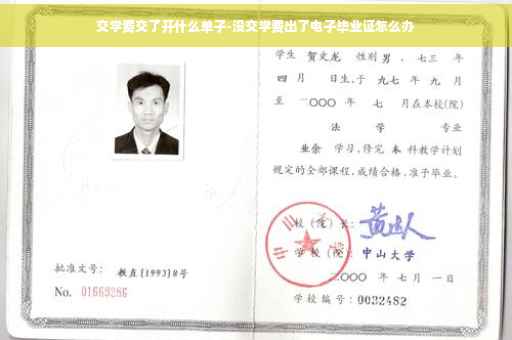 交学费交了开什么单子-没交学费出了电子毕业证怎么办
学生 贺文龙 性别 男 、七三 年
四 月 日生,于 九七 年 九 月
至 二〇〇〇 年 七 月在本校(院)
法 学 专业
业余 学习,修完 本 科教学计划
规定的全部课程,成绩合格,准予毕业。
校(院)长:
学 校(院): 中山大学
二〇〇〇 年 七 月 一 日
学校编号: 0032482
批准文号: 教直[1993]8号
No. 01669286